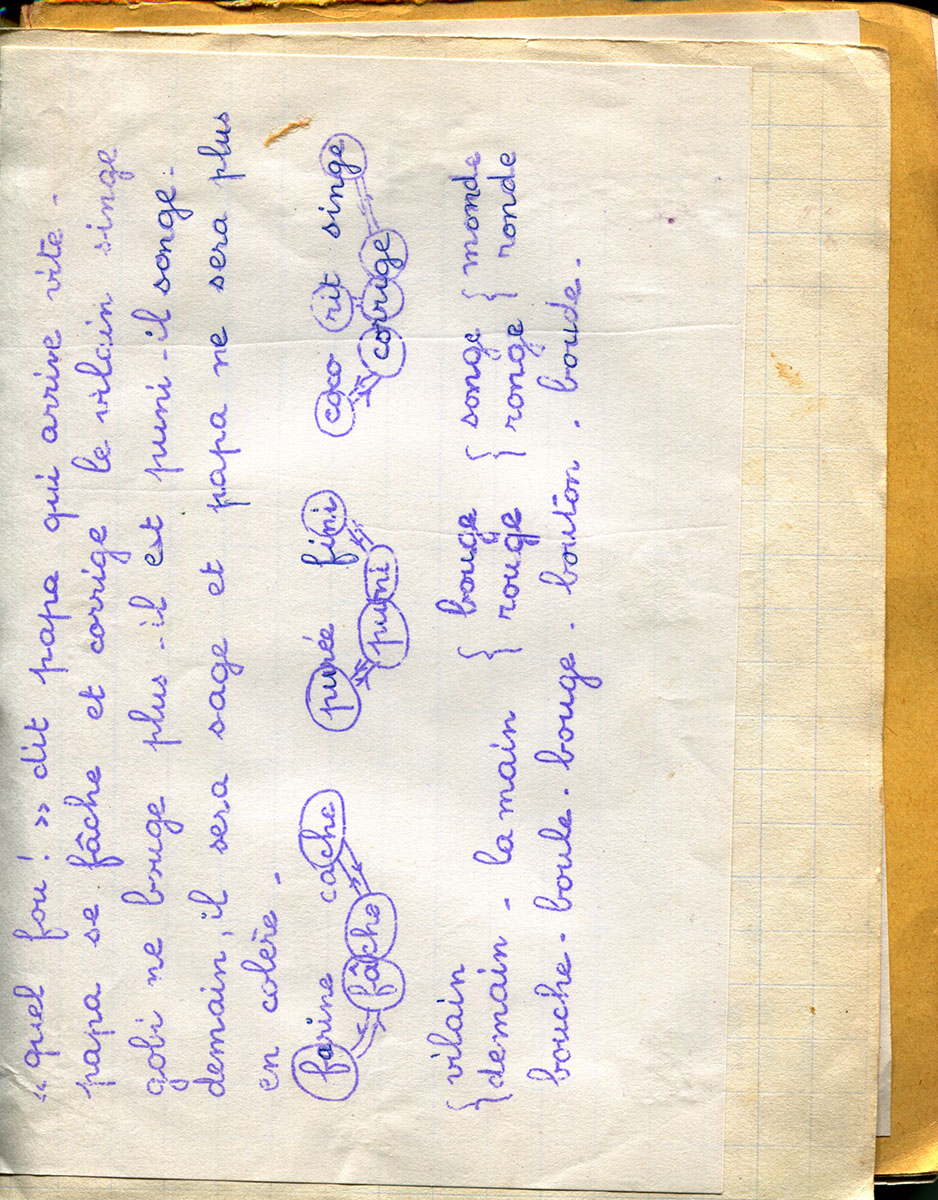 « quel fou ! » dit papa qui arrive vite -
papa se fâche et corrige le vilain singe
gobi ne bouge plus - il est puni - il songe -
demain, il sera sage et papa ne sera plus
en colère -
farine cache purée fini coco rit singe
fâche puni corrige
vilain { bouge { songe { monde
{ demain - la main { rouge { ronge { ronde
bouche . boule . bouge . bouton . boude .